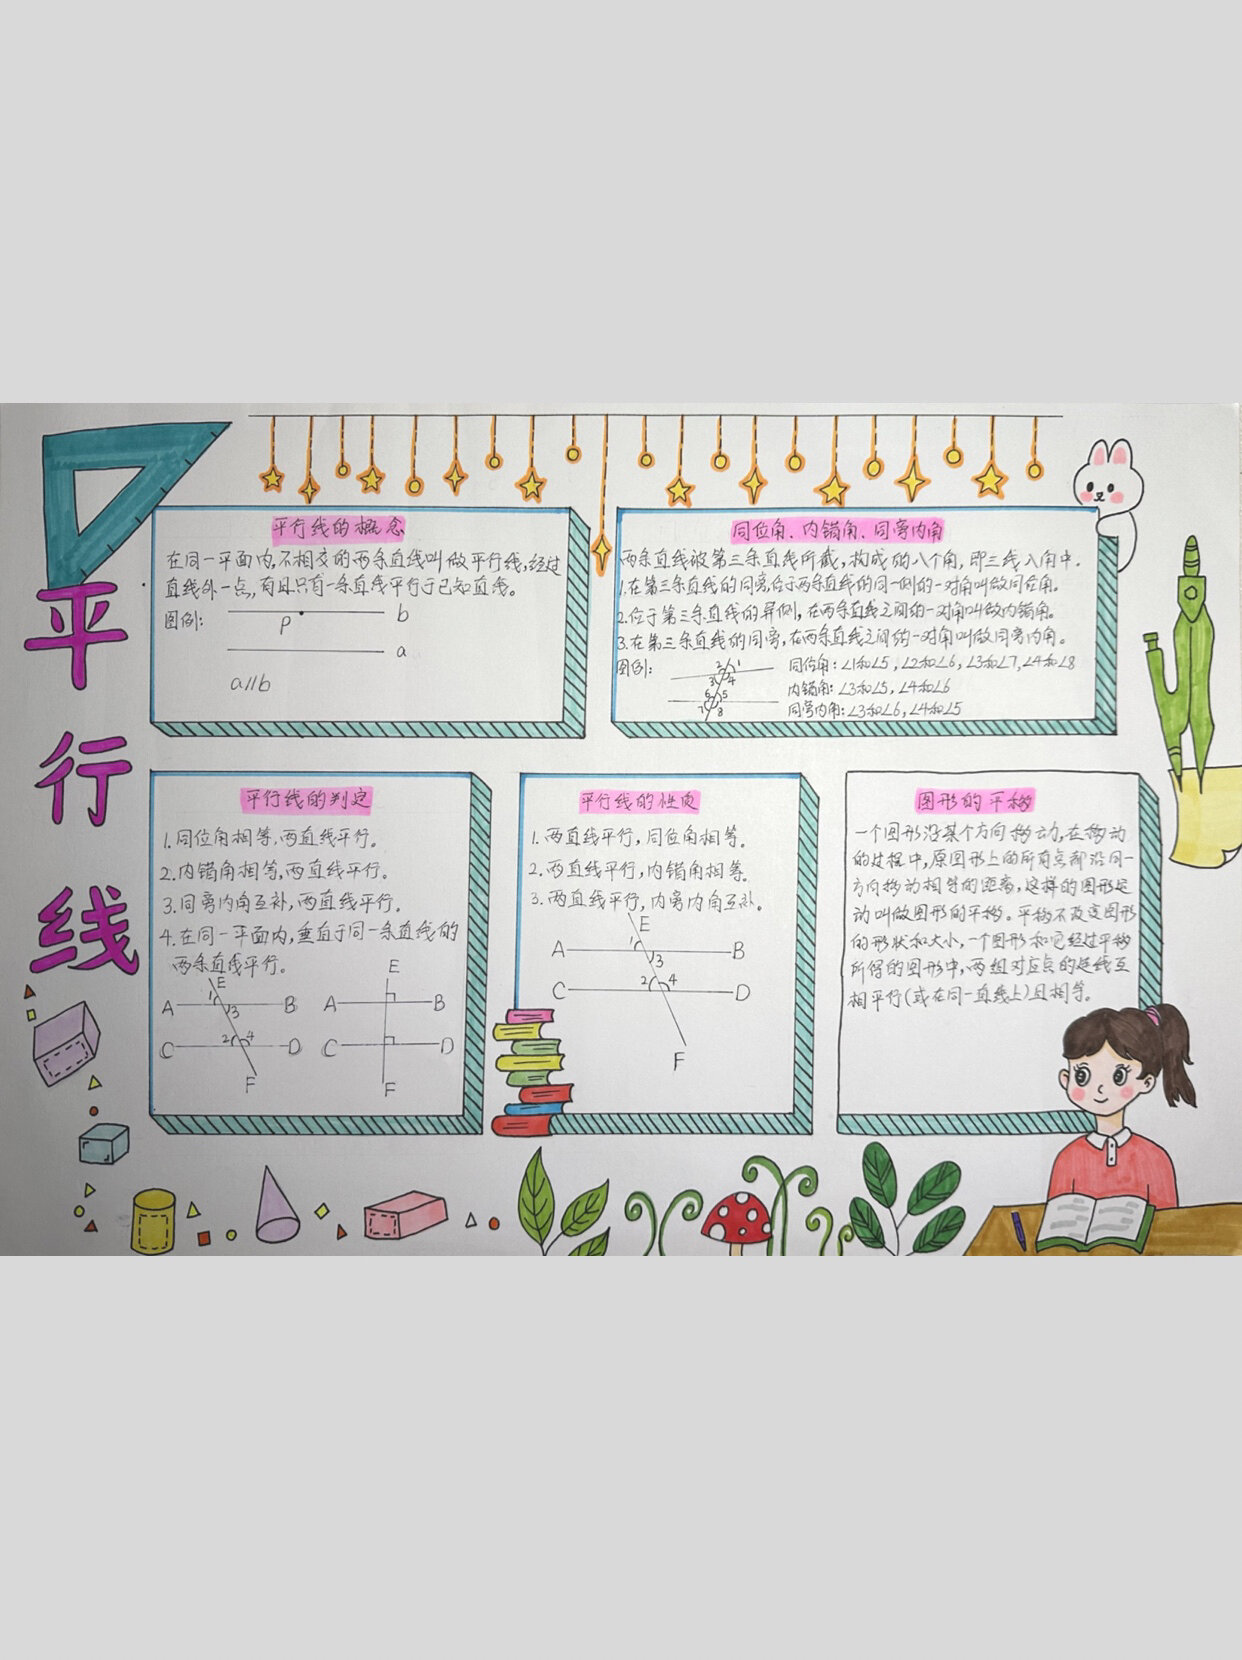 平行线
平行线的概念
在同一平面内,不相交的两条直线叫做平行线,经过
直线外一点,有且只有一条直线平行于已知直线。
图例:
P
b
a
a//b
同位角、内错角、同旁内角
两条直线被第三条直线所截,构成的八个角,即三线八角中.
1.在第三条直线的同旁,位于两条直线的同一侧的一对角叫做同位角。
2.位于第三条直线的异侧,在两条直线之间的一对角叫做内错角。
3.在第三条直线的同旁,在两条直线之间的一对角叫做同旁内角。
图例:
2 1
3 4
6 5
7 8
同位角:∠1和∠5,∠2和∠6,∠3和∠7,∠4和∠8
内错角:∠3和∠5,∠4和∠6
同旁内角:∠3和∠6,∠4和∠5
平行线的判定
1.同位角相等,两直线平行。
2.内错角相等,两直线平行。
3.同旁内角互补,两直线平行。
4.在同一平面内,垂直于同一条直线的
两条直线平行。
E
A 1 3 B
C 2 4 D
F
E
A B
C D
F
平行线的性质
1.两直线平行,同位角相等。
2.两直线平行,内错角相等。
3.两直线平行,内旁内角互补。
E
A 1 3 B
C 2 4 D
F
图形的平移
一个图形沿某个方向移动,在移动
的过程中,原图形上的所有点都沿同一
方向移动相等的距离,这样的图形运
动叫做图形的平移。平移不改变图形
的形状和大小,一个图形和它经过平移
所得的图形中,两组对应点的连线互
相平行(或在同一直线上)且相等。